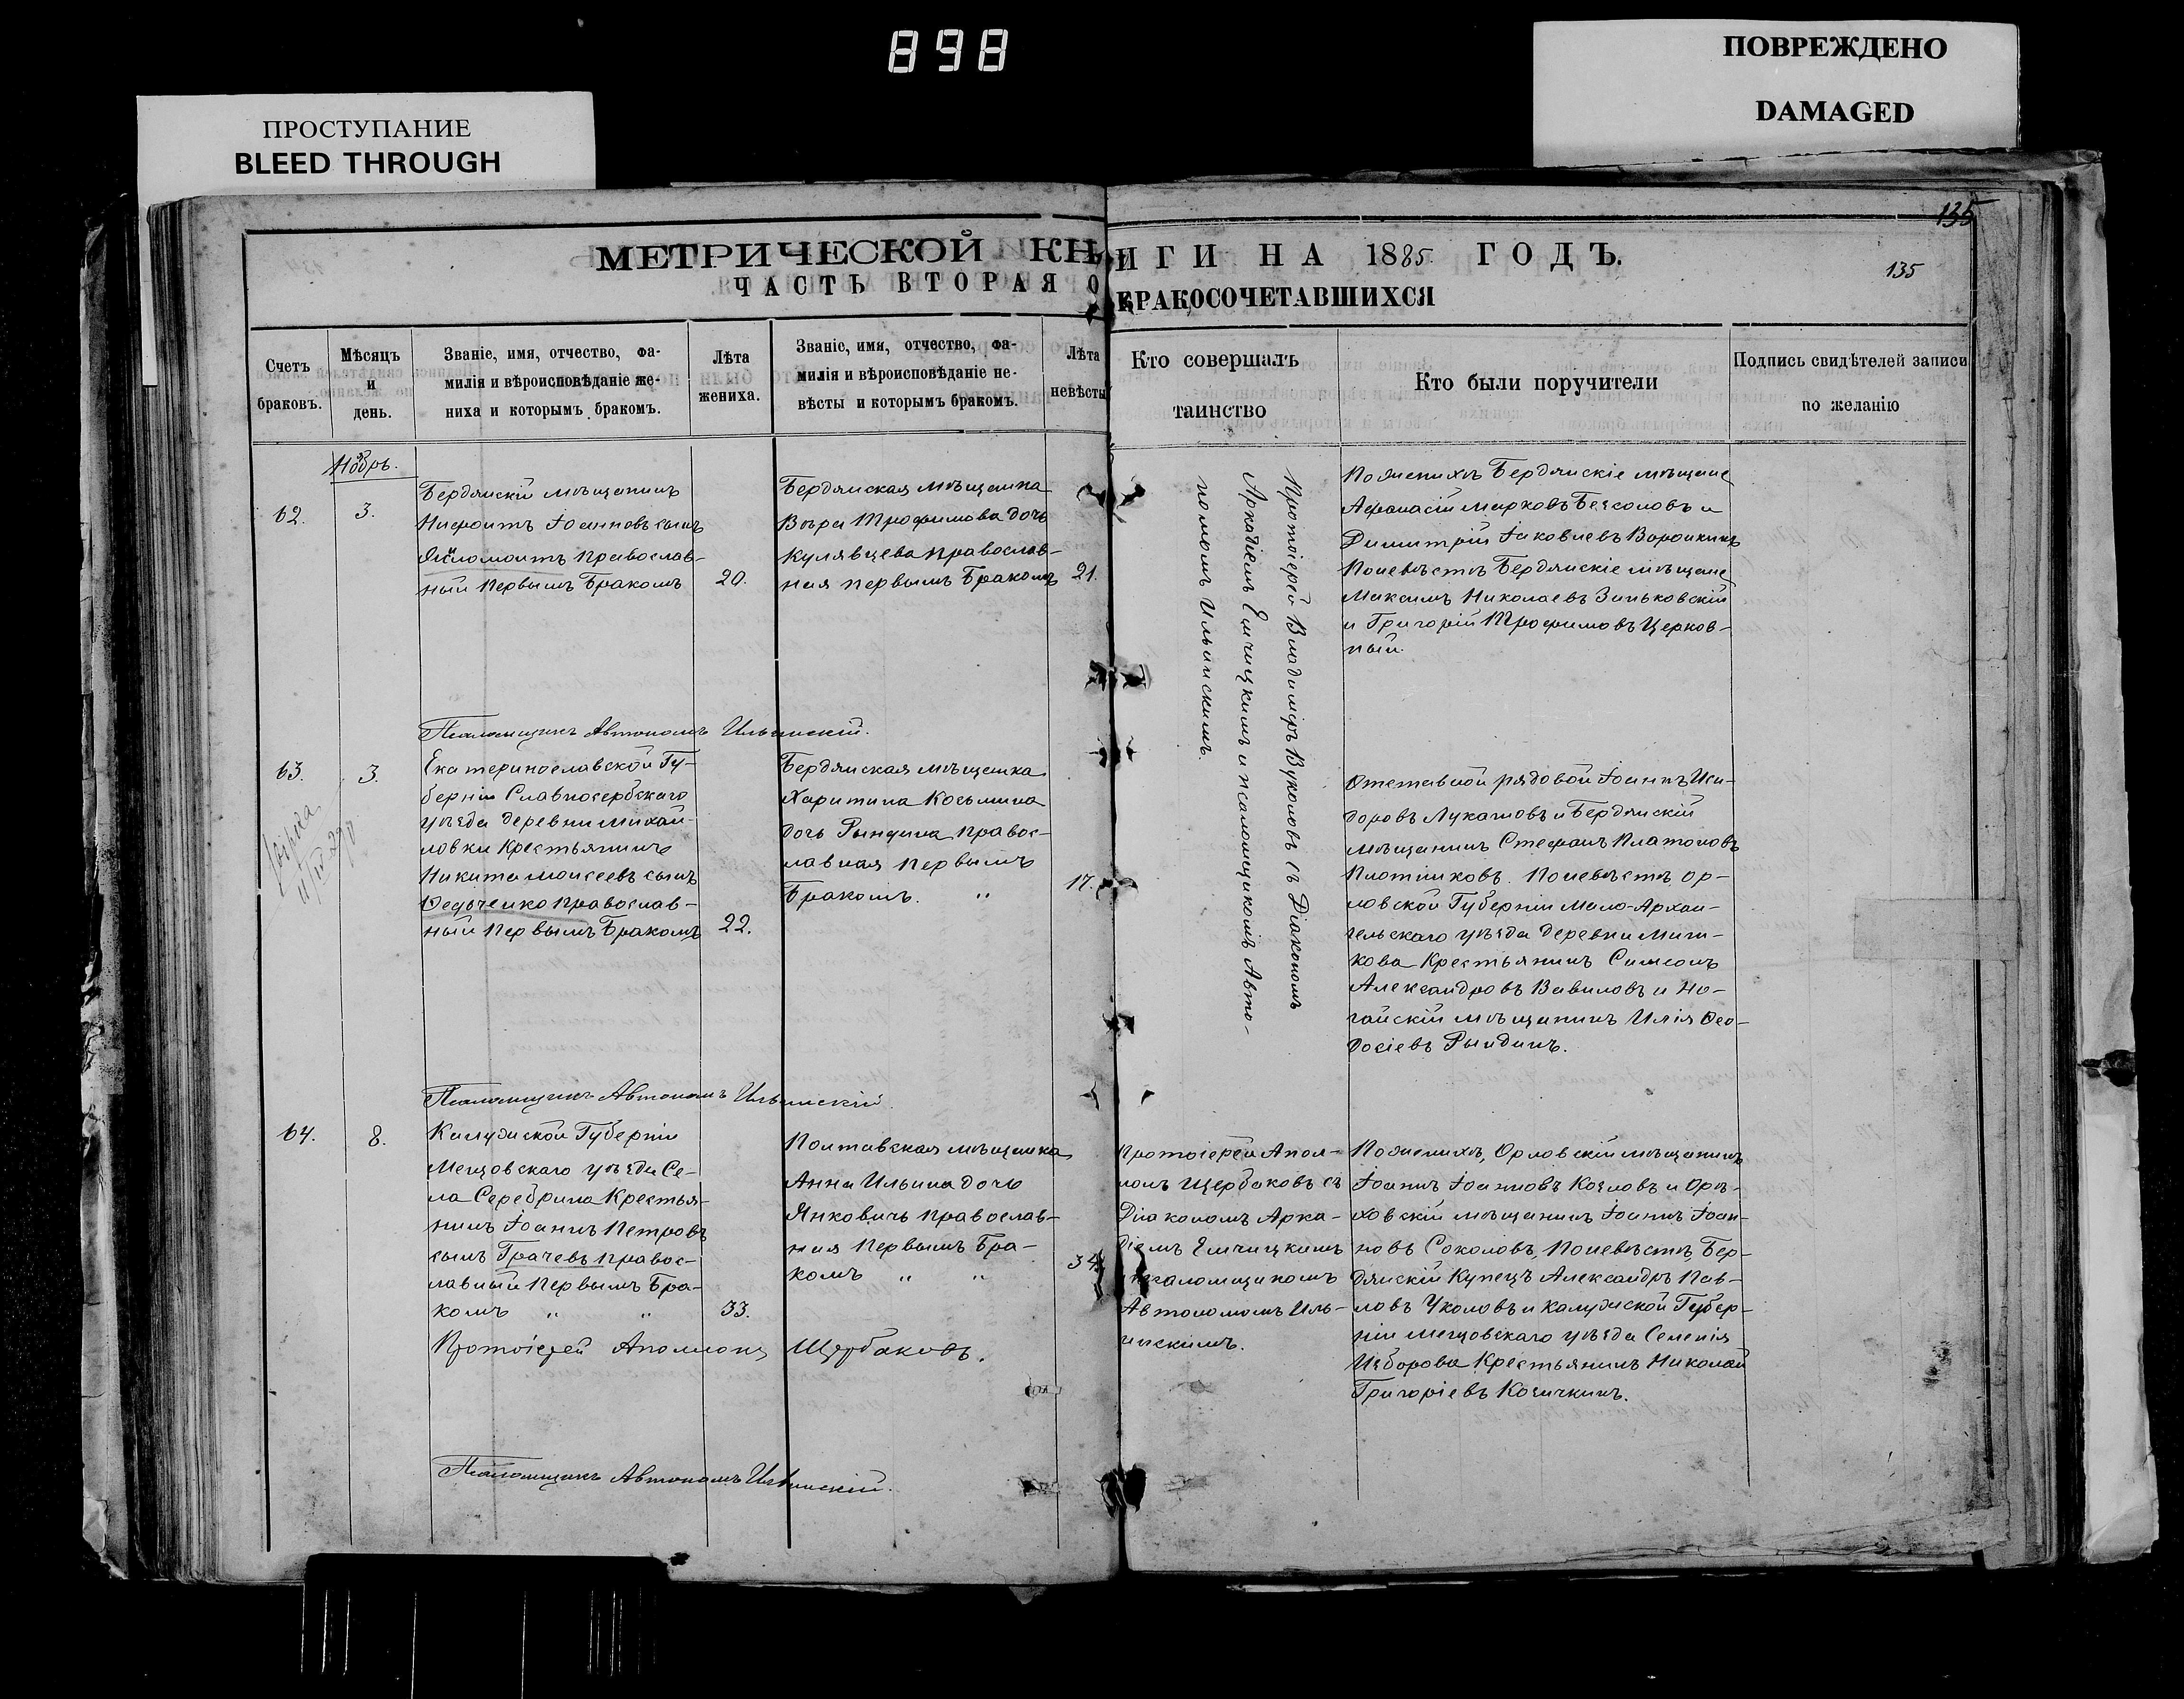 898
ПОВРЕЖДЕНО
DAMAGED
ПРОСТУПАНИЕ
BLEED THROUGH
135
МЕТРИЧЕСКОЙ КНИГИ НА 1885 ГОДЪ.
135
ЧАСТЬ ВТОРАЯ О БРАКОСОЧЕТАВШИХСЯ
Счетъ
браковъ.
Мѣсяцъ
и
день.
Званіе, имя, отчество, фа-
милія и вѣроисповѣданіе же-
ниха и которымъ бракомъ.
Лѣта
жениха.
Званіе, имя, отчество, фа-
милія и вѣроисповѣданіе не-
вѣсты и которымъ бракомъ.
Лѣта
невѣсты
Кто совершалъ
таинство
Кто были поручители
Подпись свидѣтелей записи
по желанію
Ноябрь.
62.
3.
Бердянскій мѣщанинъ
Нифонтъ Іоанновъ сынъ
православ-
ный первымъ бракомъ
20.
Бердянская мѣщанка
Вѣра Трофимова дочь
Кулявцева православ-
ная первымъ бракомъ
21.
Протоіерей Владимiръ Вуколовъ съ Діакономъ
Аркадіемъ Емчицкимъ и псаломщикомъ Авто-
номомъ Ильинскимъ.
По женихѣ Бердянскіе мѣщане
Афанасій Марковъ и
Димитрій Іаковлевъ Воронкинъ
По невѣстѣ Бердянскіе мѣщане
Максимъ Николаевъ Зиньковскій
и Григорій Трофимовъ Церков-
ный.
Псаломщикъ Автономъ Ильинскій.
63.
3.
Екатеринославской Гу-
берніи Славяносербскаго
уѣзда деревни Михай-
ловки Крестьянинъ
Никита Моисеевъ сынъ
Ѳедченко православ-
ный первымъ бракомъ
22.
Бердянская мѣщанка
Харитина Косьмина
дочь Рындина правос-
лавная первымъ
бракомъ. "
17.
Отставной рядовой Іоаннъ Иси-
доровъ Лукашовъ и Бердянскій
мѣщанинъ Стефанъ Платоновъ
Плотниковъ. По невѣстѣ, Ор-
ловской Губерніи Мало-Архан-
гельскаго уѣзда деревни
Крестьянинъ Симеонъ
Александровъ Вавиловъ и Но-
гайскій мѣщанинъ Илія Ѳео-
досіевъ Рындинъ.
Псаломщикъ Автономъ Ильинскій.
64.
8.
Калужской Губерніи
Мещовскаго уѣзда Се-
ла Серебрина Крестья-
нинъ Іоаннъ Петровъ
сынъ Грачевъ правос-
лавный первымъ бра-
комъ " "
33.
Полтавская мѣщанка
Анна Ильина дочь
Янковичъ православ-
ная первымъ бра-
комъ " "
34.
Протоіерей Апол-
лонъ Щербаковъ съ
Діакономъ Арка-
діемъ Емчицкимъ
и псаломщикомъ
Автономомъ Иль-
инскимъ.
По женихѣ, Орловскій мѣщанинъ
Іоаннъ Іоанновъ Козловъ и Орѣ-
ховскій мѣщанинъ Іоаннъ Іоан-
новъ Соколовъ, По невѣстѣ, Бер-
дянскій Купецъ Александръ Пав-
ловъ Уколовъ и Калужской Губер-
ніи Мещовскаго уѣзда Селенія
Изборова Крестьянинъ Николай
Григоріевъ Козичкинъ.
Протоіерей Аполлонъ Щербаковъ.
Псаломщикъ Автономъ Ильинскій.